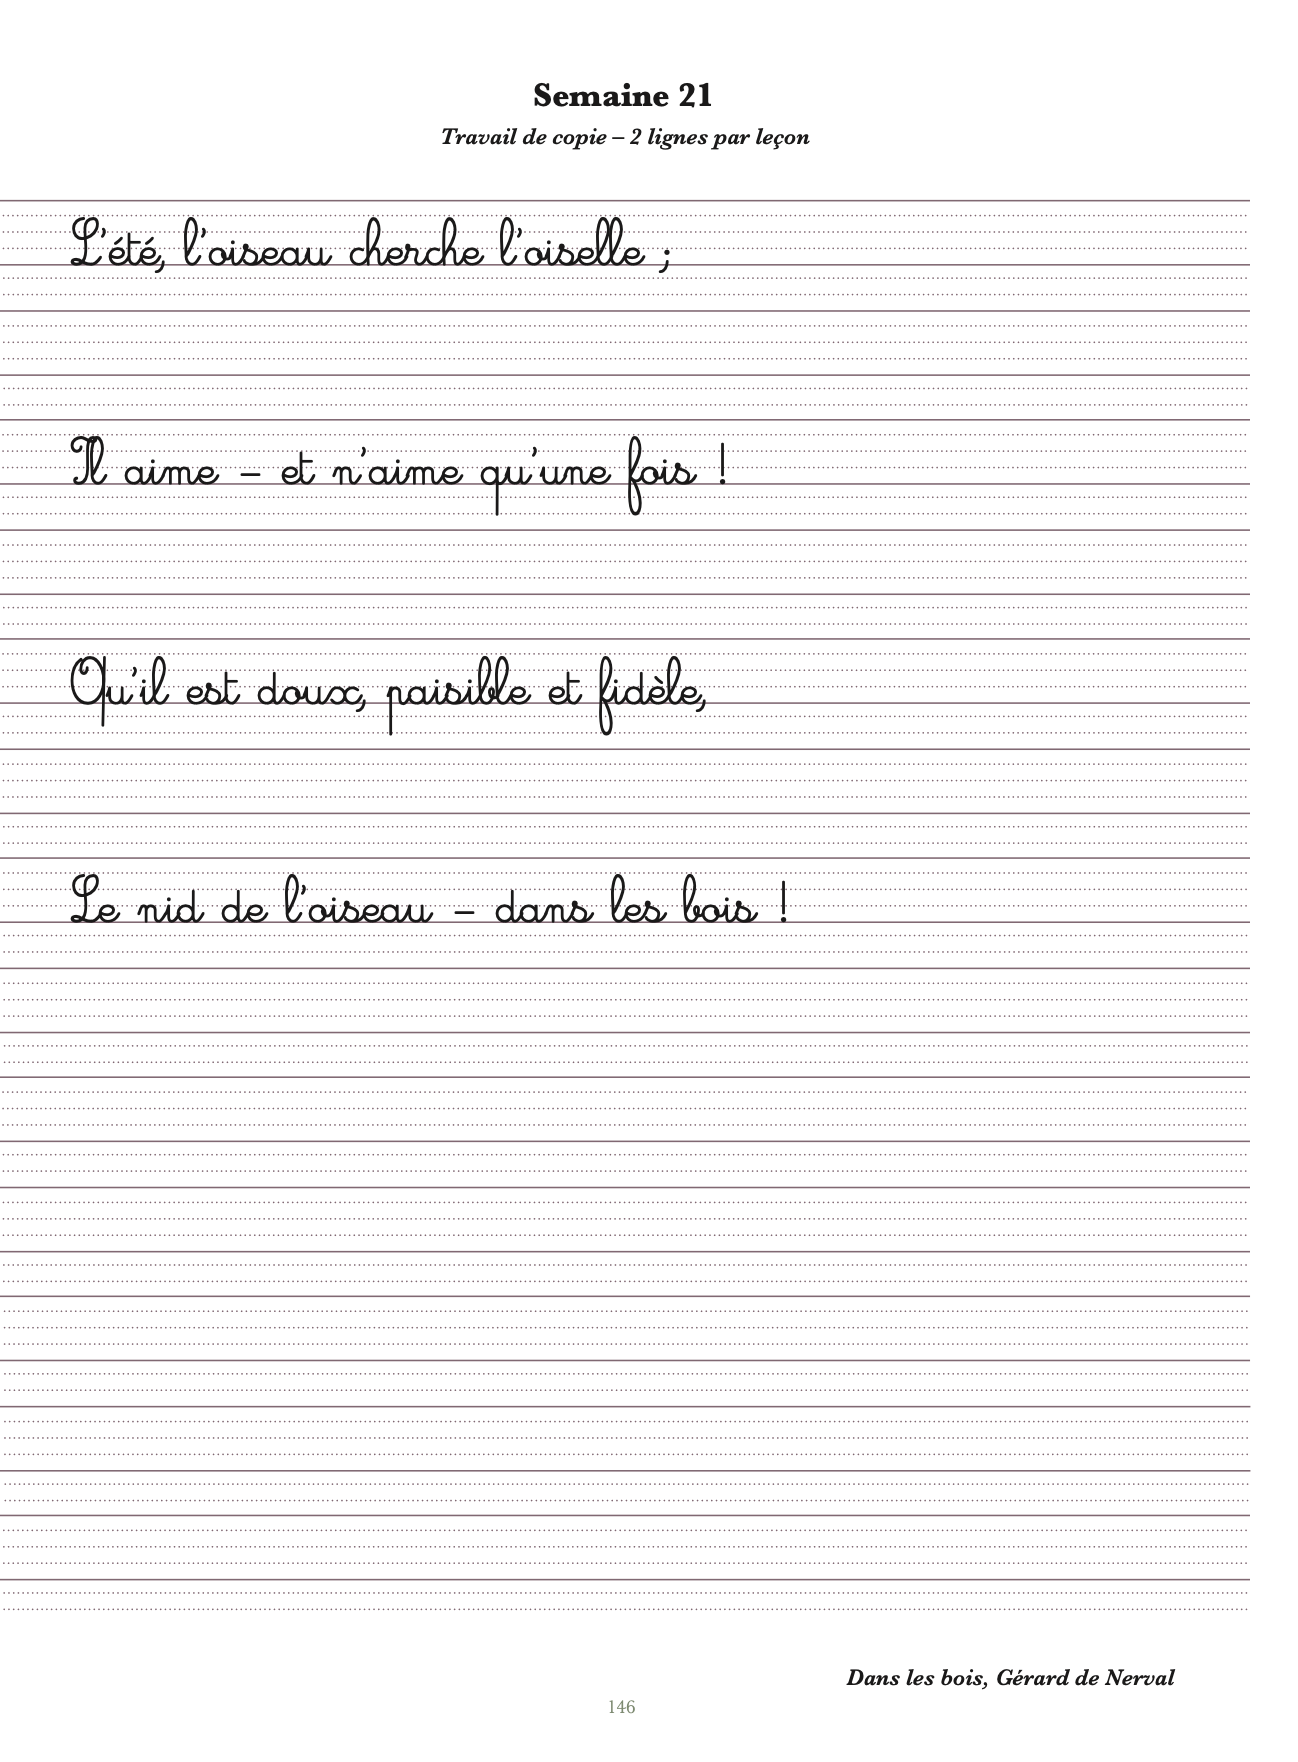 Semaine 21
Travail de copie – 2 lignes par leçon
L'été, l'oiseau cherche l'oiselle ;
Il aime – et n'aime qu'une fois !
Qu'il est doux, paisible et fidèle,
Le nid de l'oiseau – dans les bois !
Dans les bois, Gérard de Nerval
146